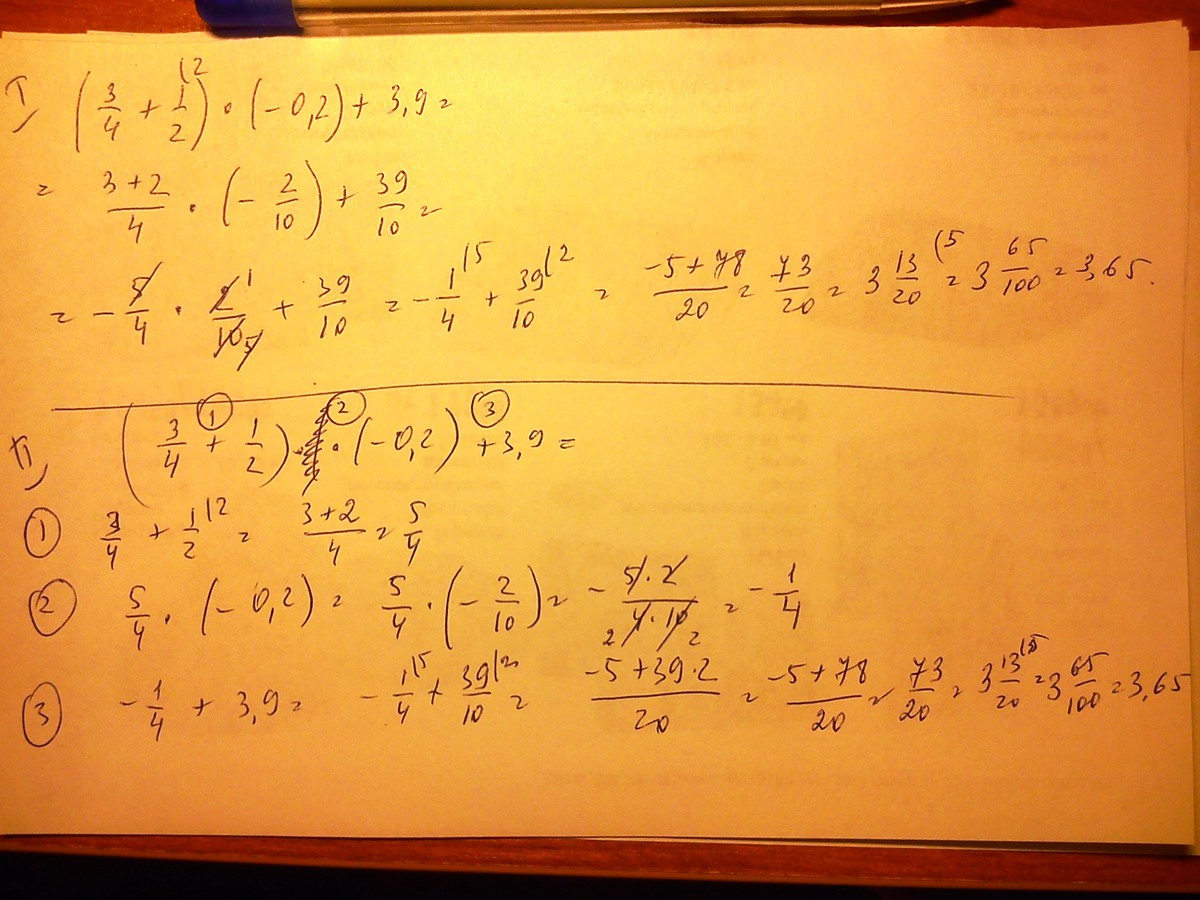 I) (3/4 + 1/2 (2) · (-0,2) + 3,9 =
= 3+2/4 · (- 2/10) + 39/10 =
= - 5/4 · 2 1/10 5 + 39/10 = - 1/4 (5 + 39/10 (2 = -5+78/20 = 73/20 = 3 13/20 (5 = 3 65/100 = 3,65.
II) (3/4 + 1/2) · (-0,2) + 3,9 =
1 2 3
1 3/4 + 1/2 (2 = 3+2/4 = 5/4
2 5/4 · (-0,2) = 5/4 · (- 2/10) = - 5·2/2 4·10 2 = - 1/4
3 - 1/4 + 3,9 = - 1/4 (5 + 39/10 (2 = -5+39·2/20 = -5+78/20 = 73/20 = 3 13/20 (5 = 3 65/100 = 3,65